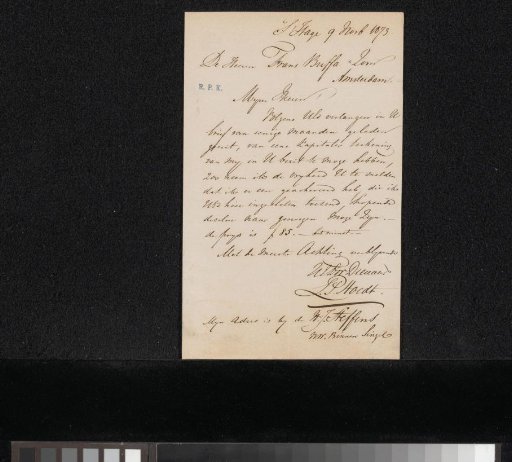 S'Hage 9 Novb 1873.
De Heeren Frans Buffa & Zoon
Amsterdam.
R. P. K.
Mijne Heeren
Volgens UEs verlangen in U
brief van eenige maanden geleden
geuit, van eene kapitale teekening
van mij in U bezit te mogen hebben,
zoo neem ik de vrijheid U te melden
dat ik er een geacheveerd heb, die ik
UEs hier ingesloten toezend,
deselve naar genoegen moge zijn. —
de prijs is f 85. —
Met de meeste Achting
UEd Dw Dienaar
Mijn adres is bij de Hr J. Steffens
NW. Binnen Singel